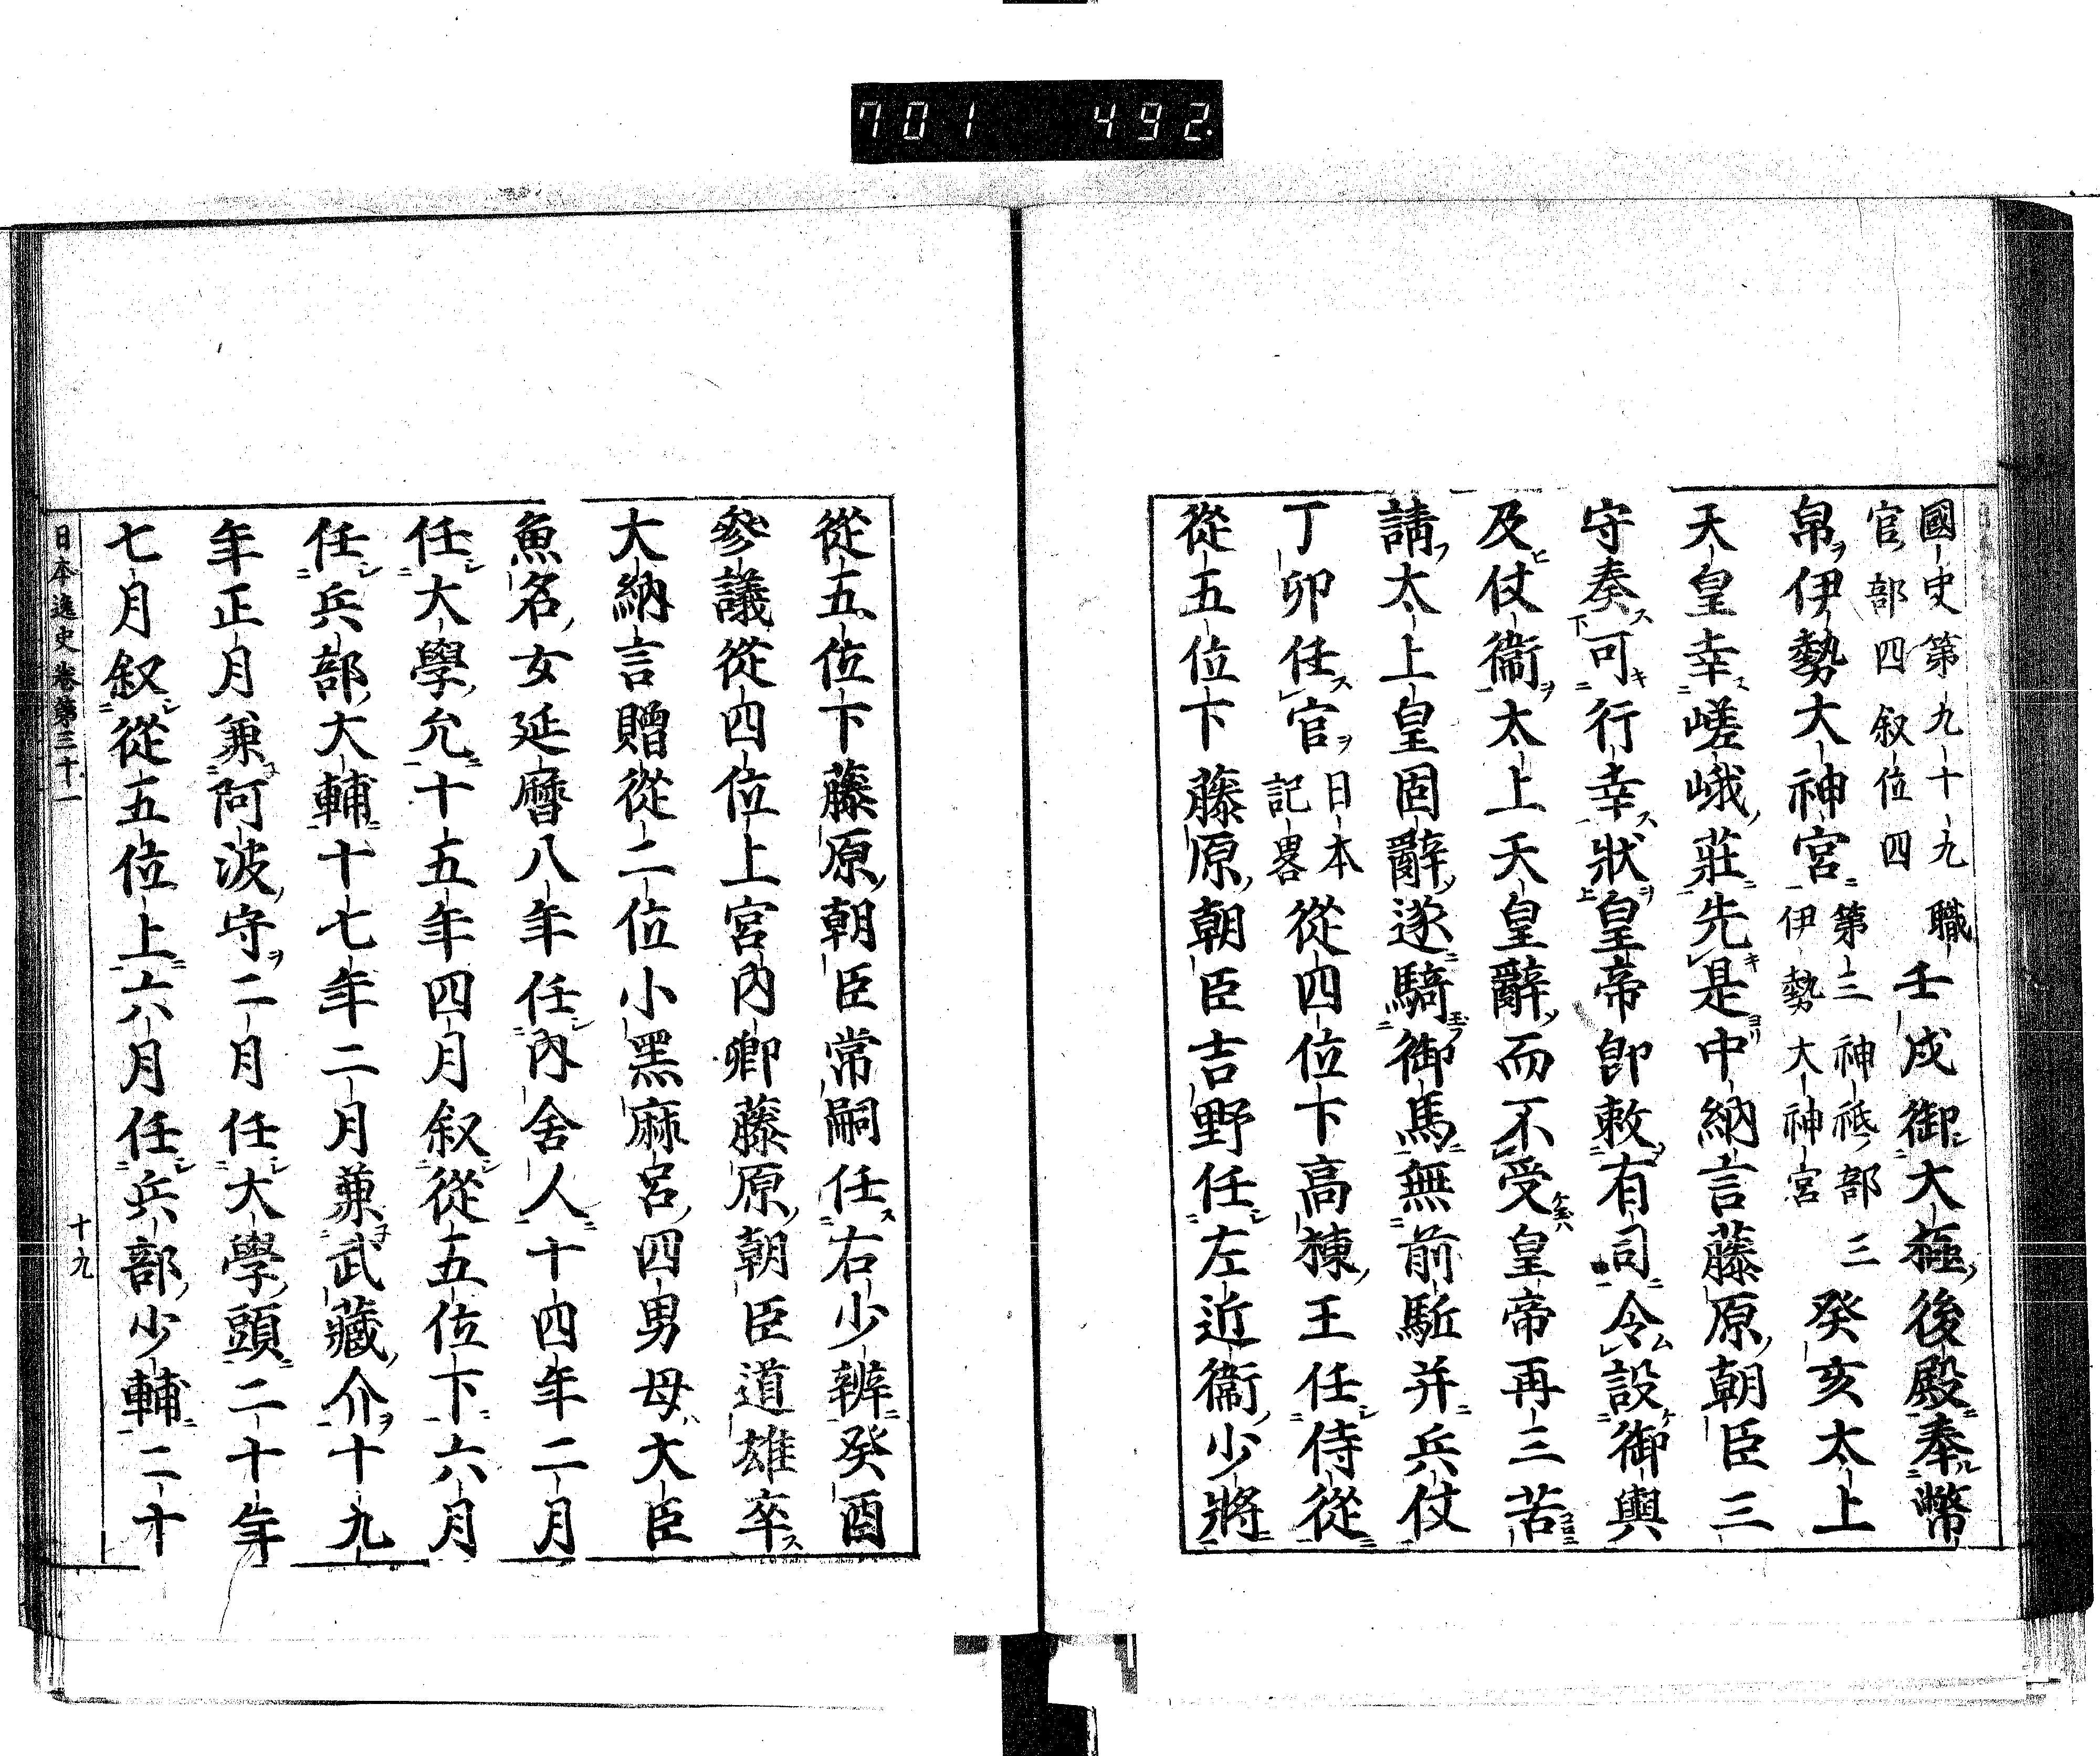 701 492.
國史第九十九職
官部四叙位四
壬戌御大極後殿奉幣
帛伊勢大神宮
第三神祇部三
伊勢大神宮
癸亥太上
天皇幸嵯峨莊先是中納言藤原朝臣三
守奏可行幸狀皇帝卽敕有司令設御輿
及仗衞太上天皇辭而不受皇帝再三苦
請太上皇固辭遂騎御馬無前駈并兵仗
丁卯任官
日本
記畧
從四位下高棟王任侍從
從五位下藤原朝臣吉野任左近衞少將
從五位下藤原朝臣常嗣任右少辨癸酉
參議從四位上宮內卿藤原朝臣道雄卒
大納言贈從二位小黑麻呂四男母大臣
魚名女延曆八年任內舍人十四年二月
任大學允十五年四月叙從五位下六月
任兵部大輔十七年二月兼武藏介十九
年正月兼阿波守二月任大學頭二十年
七月叙從五位上六月任兵部少輔二十
日本逸史卷第三十一
十九